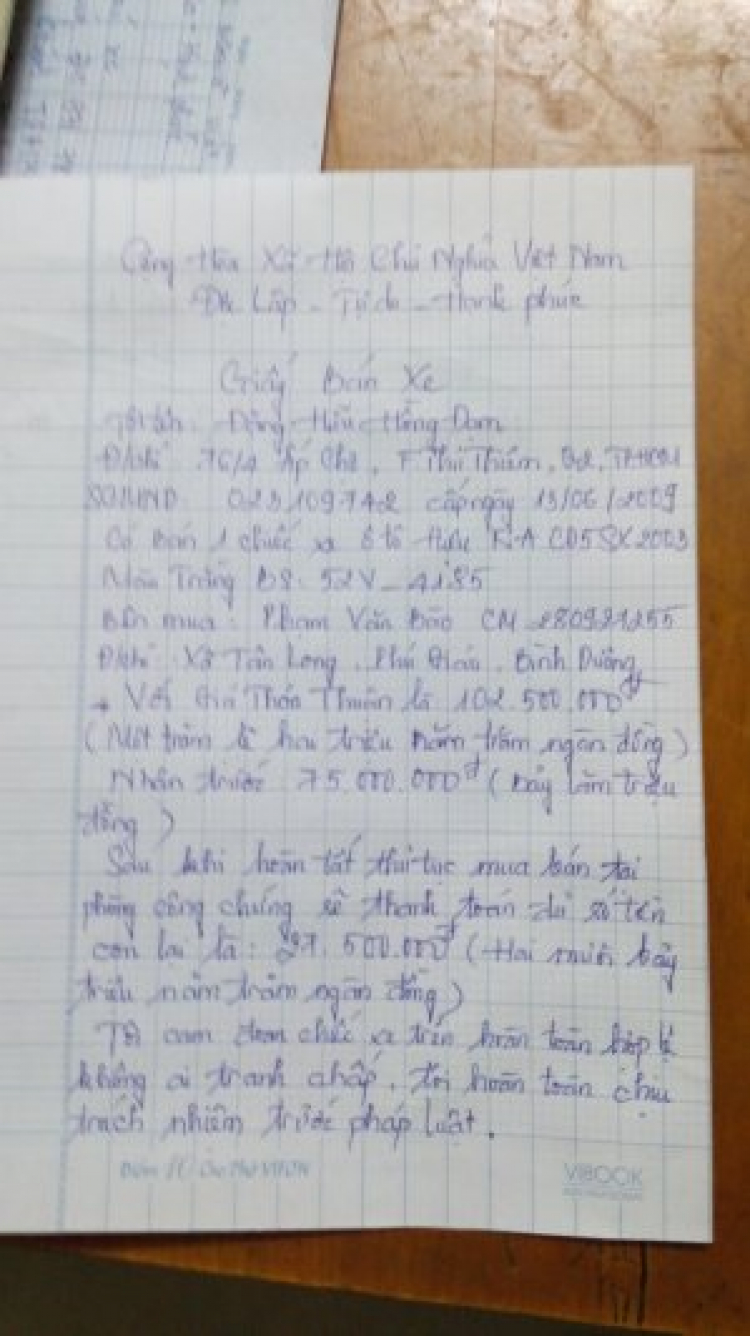 Cộng Hòa Xã Hội Chủ Nghĩa Việt Nam
Độc Lập - Tự do - Hạnh phúc
Giấy Bán Xe
Tôi tên: Đặng Hữu Hồng
Đ/chỉ 76/4 Ấp Chợ, F Thủ Thiêm, Q2, TPHCM
SCMND: 023109742 cấp ngày 13/06/2009
Có bán 1 chiếc xe ô tô hiệu KIA CD5 SX 2003
Màu Trắng BS: 52V-4185
Bên mua: Phạm Văn Bảo CM 280921255
Đ/chỉ Xã Tân Long, Phú Giáo, Bình Dương
+ Với Giá Thỏa Thuận là 102.500.000đ
(Một trăm lẻ hai triệu năm trăm ngàn đồng)
Nhận trước 75.000.000đ (bảy lăm triệu
đồng)
Sau khi hoàn tất thủ tục mua bán tại
phòng công chứng sẽ thanh toán đủ số tiền
còn lại là: 27.500.000đ (Hai mươi bảy
triệu năm trăm ngàn đồng)
Tôi cam đoan chiếc xe trên hoàn toàn hợp lệ
không ai tranh chấp, tôi hoàn toàn chịu
trách nhiệm trước pháp luật.
VIBOOK